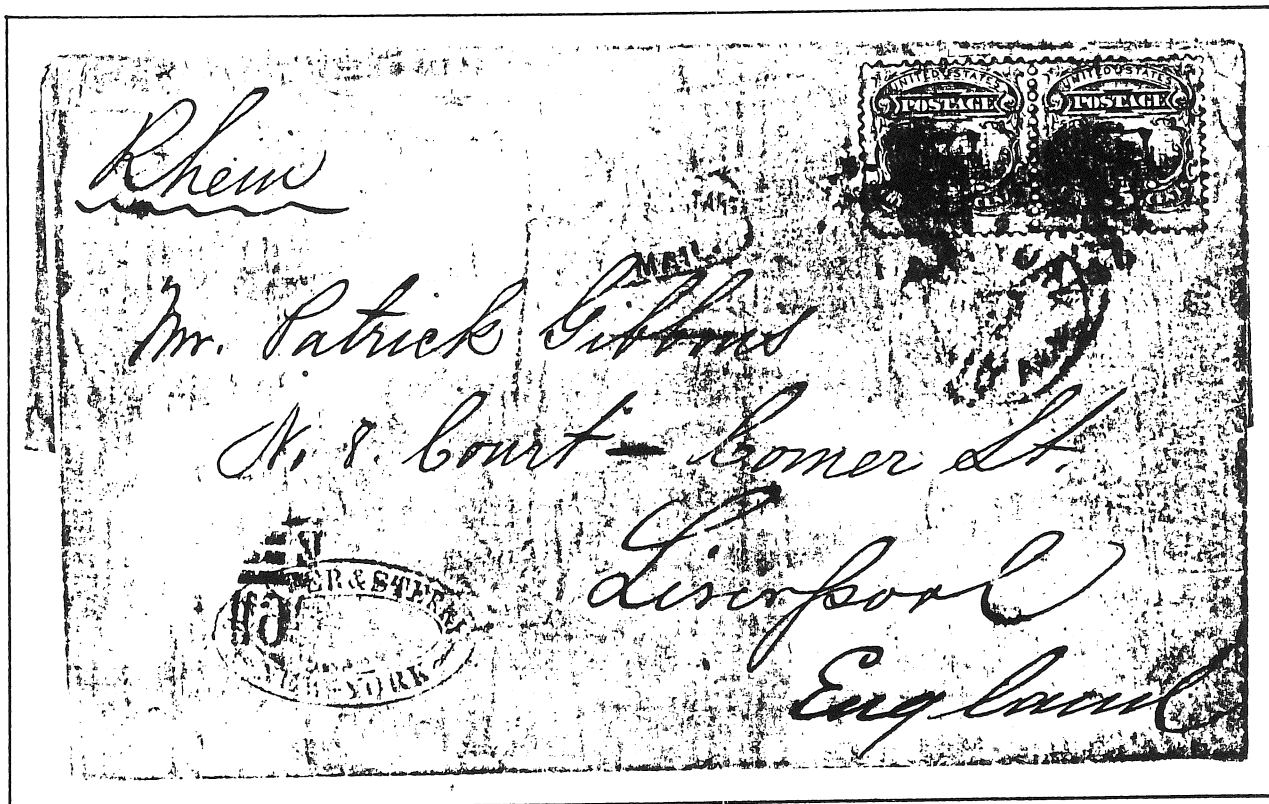 UNITED STATES UNITED STATES
POSTAGE POSTAGE
Rhein
MAIL
Mr. Patrick Gibbons
N. 8. Court – Comer St.
Liverpool
England
ER & STERN
YORK